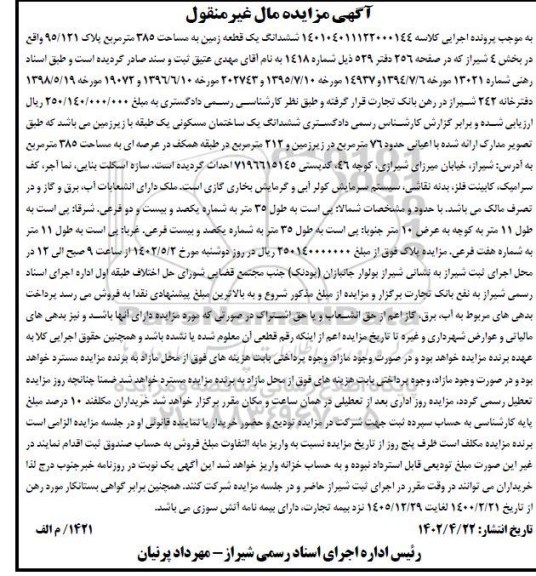 آگهی مزایده مال غیرمنقول
به موجب پرونده اجرایی کلاسه ۱۴۰۱۰۴۰۱۱۱۲۲۰۰۰۱۴۴ ششدانگ یک قطعه زمین به مساحت ۳۸۵ مترمربع پلاک ۹۵/۱۲۱ واقع
در بخش ۴ شیراز که در صفحه ۲۵۶ دفتر ۵۲۹ ذیل شماره ۱۴۱۸ به نام آقای مهدی عتیق ثبت و سند صادر گردیده است و طبق اسناد
رهنی شماره ۱۳۰۲۱ مورخه ۱۳۹۴/۷/۶ و ۱۴۹۳۷ مورخه ۱۳۹۵/۷/۱۰ و ۲۰۲۷۴۳ مورخه ۱۳۹۶/۶/۱۰ و ۱۹۰۷۲ مورخه ۱۳۹۸/۵/۱۹
دفترخانه ۲۴۲ شیراز در رهن بانک تجارت قرار گرفته و طبق نظر کارشناسی رسمی دادگستری به مبلغ ۲۵۰/۱۴۰/۰۰۰/۰۰۰ ریال
ارزیابی شده و برابر گزارش کارشناس رسمی دادگستری ششدانگ یک ساختمان مسکونی یک طبقه با زیرزمین می باشد که طبق
تصویر مدارک ارائه شده با اعیانی حدود ۷۶ مترمربع در زیرزمین و ۲۱۲ مترمربع در طبقه همکف در عرصه ای به مساحت ۳۸۵ مترمربع
به آدرس: شیراز، خیابان میرزای شیرازی، کوچه ۴۶، کدپستی ۷۱۹۶۶۱۵۱۴۵ احداث گردیده است، سازه اسکلت بنایی، نما آجر، کف
سرامیک، کابینت فلز، بدنه نقاشی، سیستم سرمایش کولر آبی و گرمایش بخاری گازی است. ملک دارای انشعابات آب، برق و گاز و در
تصرف مالک می باشد. با حدود و مشخصات شمالا: پی است به طول ۳۵ متر به شماره یکصد و بیست و دو فرعی. شرقا: پی است به
طول ۱۱ متر به کوچه به عرض ۱۰ متر جنوبا: پی است به طول ۳۵ متر به شماره یکصد و بیست فرعی. غربا: پی است به طول ۱۱ متر
به شماره هفت فرعی، مزایده پلاک فوق از مبلغ ۲۵۰۱۴۰۰۰۰۰۰۰ ریال در روز دوشنبه مورخ ۱۴۰۲/۵/۲ از ساعت ۹ صبح الی ۱۲ در
محل اجرای ثبت شیراز به نشانی شیراز بولوار جانبازان (بودنک) جنب مجتمع قضایی شورای حل اختلاف طبقه اول اداره اجرای اسناد
رسمی شیراز به نفع بانک تجارت برگزار و مزایده از مبلغ مذکور شروع و به بالاترین مبلغ پیشنهادی نقدا به فروش می رسد پرداخت
بدهی های مربوط به آب، برق، گاز اعم از حق انشعاب و یا حق اشتراک در صورتی که مورد مزایده دارای آنها باشد و نیز بدهی های
مالیاتی و عوارض شهرداری و غیره تا تاریخ مزایده اعم از اینکه رقم قطعی آن معلوم شده یا نشده باشد و همچنین حقوق اجرایی کلا به
عهده برنده مزایده خواهد بود و در صورت وجود مازاد، وجوه پرداختی بابت هزینه های فوق از محل مازاد به برنده مزایده مسترد خواهد
بود و در صورت وجود مازاد، وجوه پرداختی بابت هزینه های فوق از محل مازاد به برنده مزایده مسترد خواهد شد ضمنا چنانچه روز مزایده
تعطیل رسمی گردد، مزایده روز اداری بعد از تعطیلی در همان ساعت و مکان مقرر برگزار خواهد شد. خریداران مکلفند ۱۰ درصد مبلغ
پایه کارشناسی به حساب سپرده ثبت جهت شرکت در مزایده تودیع و حضور خریدار یا نماینده قانونی او در جلسه مزایده الزامی است
برنده مزایده مکلف است ظرف پنج روز از تاریخ مزایده نسبت به واریز مابه التفاوت مبلغ فروش به حساب صندوق ثبت اقدام نمایند در
غیر این صورت مبلغ تودیعی قابل استرداد نبوده و به حساب خزانه واریز خواهد شد این آگهی یک نوبت در روزنامه خبرجنوب درج لذا
خریداران می توانند در وقت مقرر در اجرای ثبت شیراز حاضر و در جلسه مزایده شرکت کنند. همچنین برابر گواهی بستانکار مورد رهن
از تاریخ ۱۴۰۰/۲/۲۱ لغایت ۱۴۰۵/۱۲/۲۹ نزد بیمه تجارت، دارای بیمه نامه آتش سوزی می باشد.
تاریخ انتشار: ۱۴۰۲/۴/۲۲
۱۴۲۱/ م الف
رئیس اداره اجرای اسناد رسمی شیراز - مهرداد پرنیان